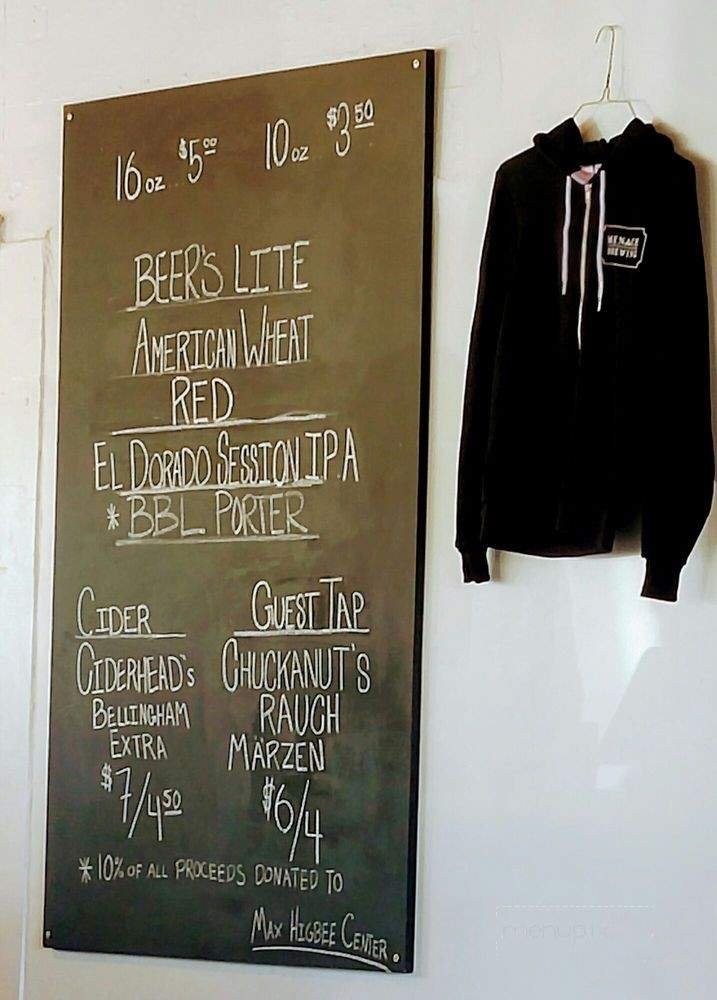 16 oz $5 00 10 oz $3 50
BEER'S LITE
AMERICAN WHEAT
RED
EL DORADO SESSION IPA
* BBL PORTER
CIDER
CIDERHEAD'S
BELLINGHAM
EXTRA
$7/4 50
GUEST TAP
CHUCKANUT'S
RAUCH
MÄRZEN
$6/4
* 10% OF ALL PROCEEDS DONATED TO
MAX HIGBEE CENTER
MENACE
BREWING